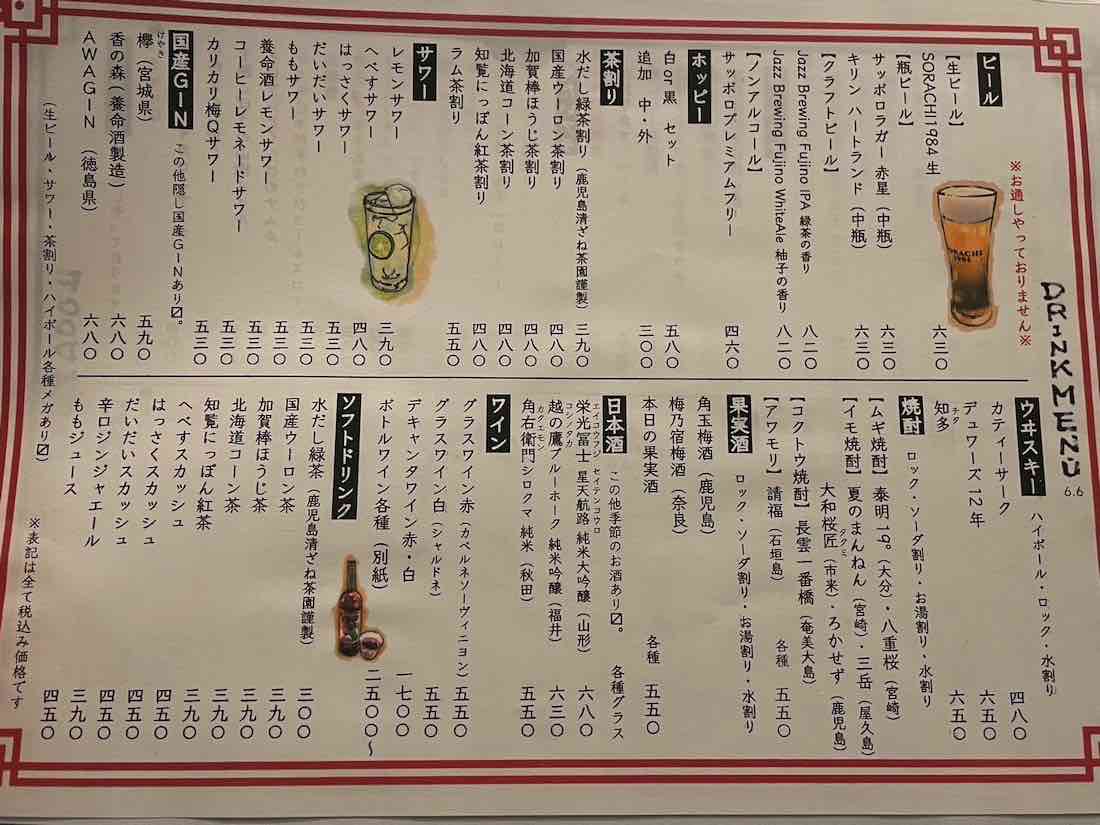 DRINK MENU
6.6
※お通しやっておりません※
ビール
【生ビール】
SORACHI1984 生 六三〇
【瓶ビール】
サッポロラガー赤星（中瓶） 六三〇
キリン ハートランド（中瓶） 六三〇
【クラフトビール】
Jazz Brewing Fujino IPA 緑茶の香り 八二〇
Jazz Brewing Fujino WhiteAle 柚子の香り 八二〇
【ノンアルコール】
サッポロプレミアムフリー 四六〇
ホッピー
白 or 黒 セット 五八〇
追加 中・外 三〇〇
茶割り
水だし緑茶割り（鹿児島清ざね茶園謹製） 三九〇
国産ウーロン茶割り 四八〇
加賀棒ほうじ茶割り 四八〇
北海道コーン茶割り 四八〇
知覧にっぽん紅茶割り 四八〇
ラム茶割り 五五〇
サワー
レモンサワー 三九〇
へべすサワー 四八〇
はっさくサワー 五三〇
だいだいサワー 五三〇
ももサワー 五三〇
養命酒レモンサワー 五三〇
コーヒーレモネードサワー 五三〇
カリカリ梅Qサワー 五三〇
国産GIN この他隠し国産GINあり〼。
欅（宮城県） 五九〇
けやき
香の森（養命酒製造） 六八〇
AWAGIN（徳島県） 六八〇
（生ビール・サワー・茶割り・ハイボール各種メガあり〼）
ウヰスキー ハイボール・ロック・水割り
カティーサーク 四八〇
デュワーズ12年 六五〇
知多 六五〇
チタ
焼酎 ロック・ソーダ割り・お湯割り・水割り
【ムギ焼酎】泰明19。（大分）・八重桜（宮崎）
【イモ焼酎】夏のまんねん（宮崎）・三岳（屋久島）
大和桜匠（市来）・ろかせず（鹿児島）
タクミ
【コクトウ焼酎】長雲一番橋（奄美大島）
【アワモリ】請福（石垣島） 各種 五五〇
果実酒 ロック ソーダ割り・お湯割り・水割り
角玉梅酒（鹿児島）
梅乃宿梅酒（奈良）
本日の果実酒 各種 五五〇
日本酒 この他季節のお酒あり〼。 各種グラス
エイコウフジ セイテンコウロ
栄光冨士 星天航路 純米大吟醸（山形） 六八〇
コシノタカ
越の鷹ブルーホーク 純米吟醸（福井） 六三〇
カクエモン
角右衛門シロクマ 純米（秋田） 五五〇
ワイン
グラスワイン赤（カベルネソーヴィニヨン） 五五〇
グラスワイン白（シャルドネ） 五五〇
デキャンタワイン赤・白 一七〇〇
ボトルワイン各種（別紙） 二五〇〇〜
ソフトドリンク
水だし緑茶（鹿児島清ざね茶園謹製） 三〇〇
国産ウーロン茶 三九〇
加賀棒ほうじ茶 三九〇
北海道コーン茶 三九〇
知覧にっぽん紅茶 三九〇
へべすスカッシュ 四五〇
はっさくスカッシュ 四五〇
だいだいスカッシュ 四五〇
辛口ジンジャエール 三九〇
ももジュース 四五〇
※表記は全て税込み価格です